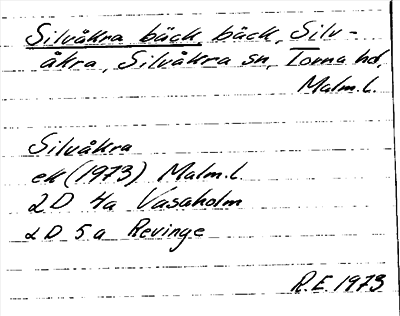 Silvåkra bäck, bäck, Silv-
åkra, Silvåkra sn, Torna hd,
Malm.l.
Silvåkra
ek (1973) Malm.l.
2D 4a Vasaholm
2D 5a Revinge
R.E. 1973